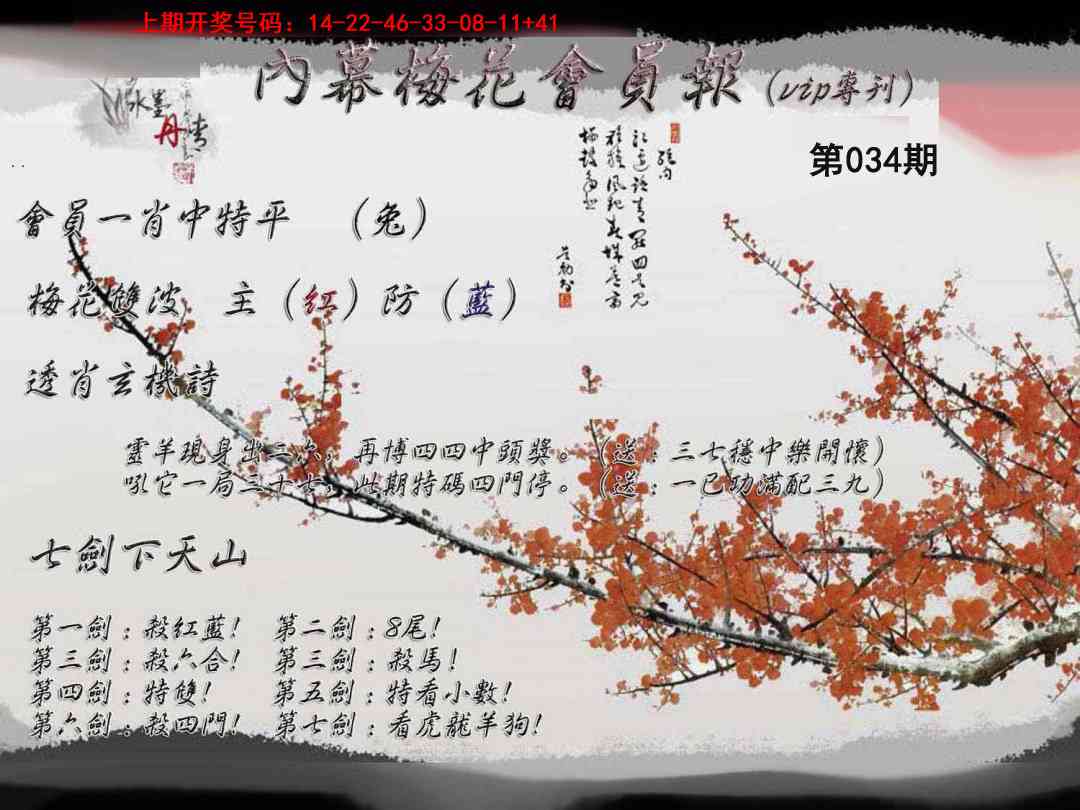 上期开奖号码：14-22-46-33-08-11+41
內幕梅花會員報（vip專刊）
水墨
丹情
第034期
會員一肖中特平　（兔）
梅花雙波　主（紅）防（藍）
透肖玄機詩
靈羊現身出二六，再博四四中頭獎。（送：三七穩中樂開懷）
吼它一局三十七，此期特碼四門停。（送：一已功滿配三九）
七劍下天山
第一劍：殺紅藍！　第二劍：8尾！
第三劍：殺六合！　第三劍：殺馬！
第四劍：特雙！　第五劍：特看小數！
第六劍：殺四門！　第七劍：看虎龍羊狗！